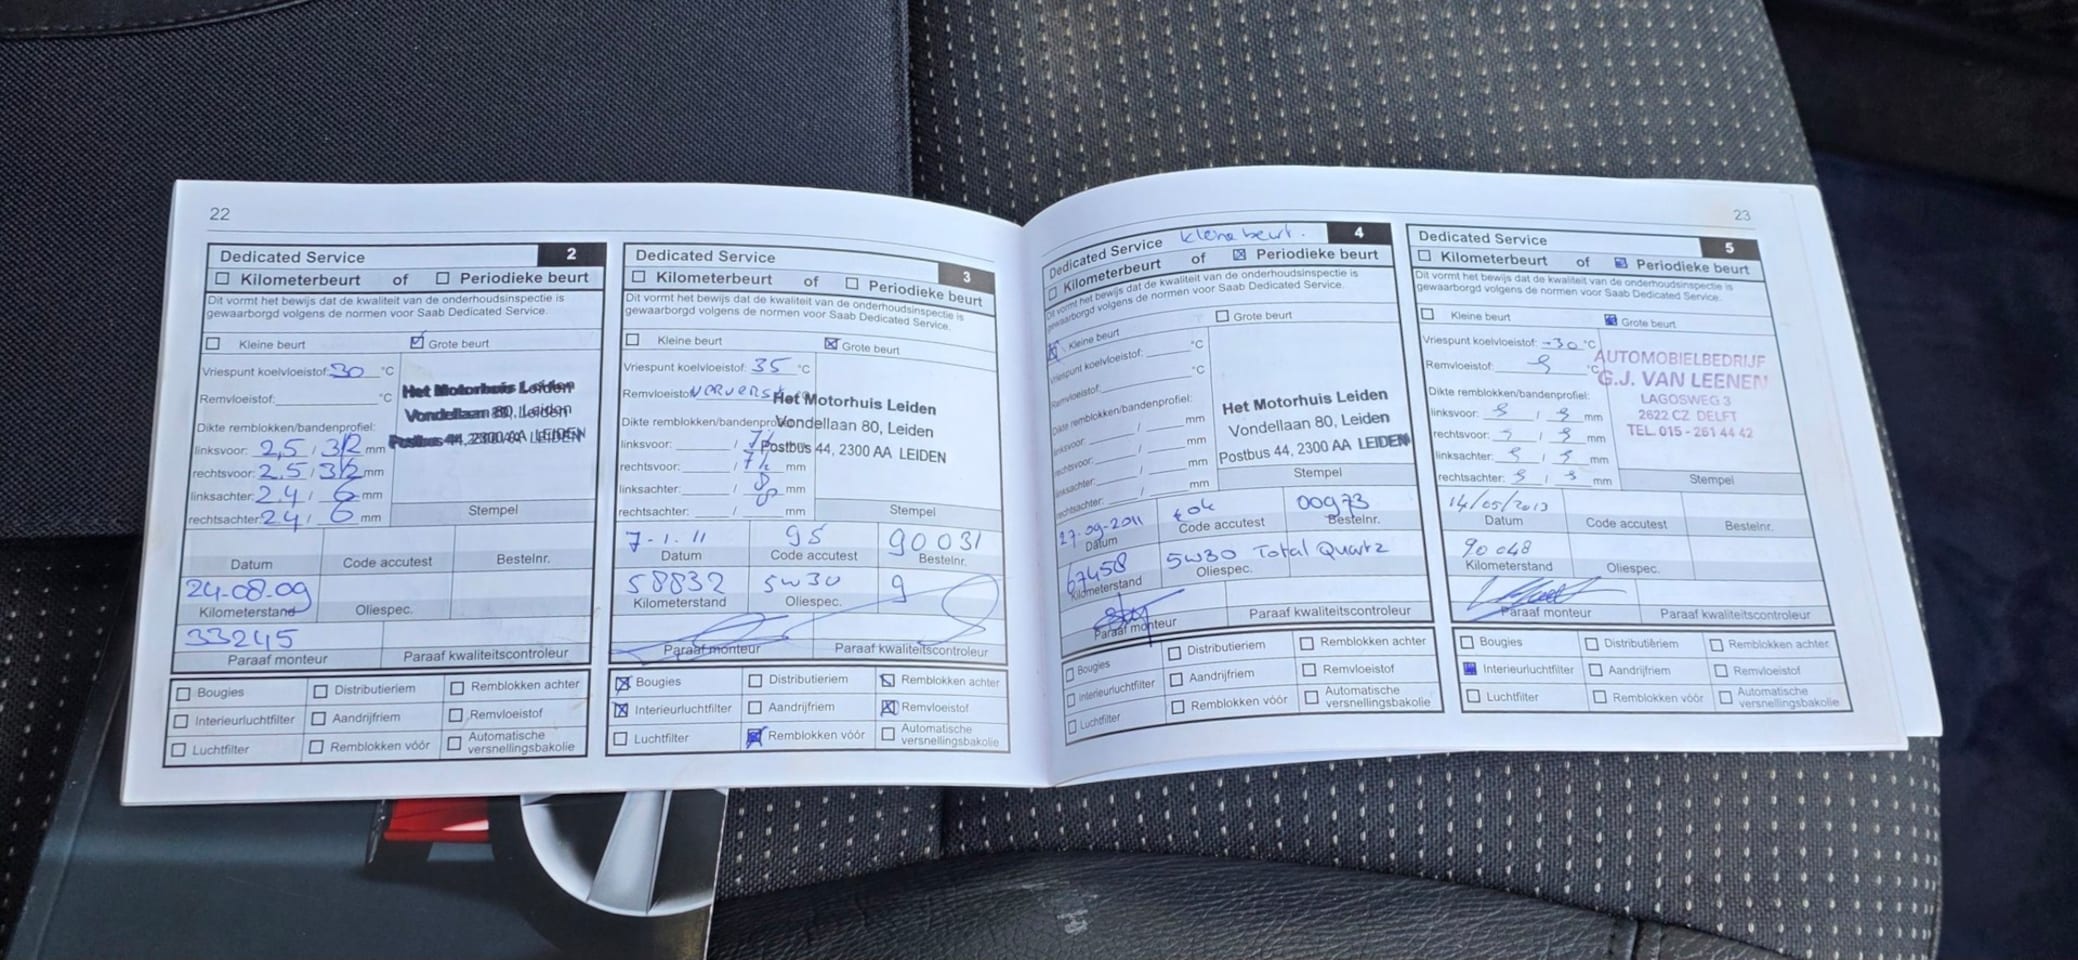 22
Dedicated Service 2
Kilometerbeurt of Periodieke beurt
Dit vormt het bewijs dat de kwaliteit van de onderhoudsinspectie is
gewaarborgd volgens de normen voor Saab Dedicated Service.
Kleine beurt Grote beurt
Vriespunt koelvloeistof: 30 °C
Remvloeistof: °C
Het Motorhuis Leiden
Vondellaan 80, Leiden
Postbus 44, 2300 AA LEIDEN
Dikte remblokken/bandenprofiel:
linksvoor: 2,5 / 3/2 mm
rechtsvoor: 2.5 / 3/2 mm
linksachter: 2.4 / 6 mm
rechtsachter: 2.4 / 6 mm
Stempel
Datum Code accutest Bestelnr.
24-08-09
Kilometerstand Oliespec.
33245
Paraaf monteur Paraaf kwaliteitscontroleur
Bougies Distributieriem Remblokken achter
Interieurluchtfilter Aandrijfriem Remvloeistof
Luchtfilter Remblokken vóór Automatische
versnellingsbakolie
Dedicated Service 3
Kilometerbeurt of Periodieke beurt
Dit vormt het bewijs dat de kwaliteit van de onderhoudsinspectie is
gewaarborgd volgens de normen voor Saab Dedicated Service.
Kleine beurt Grote beurt
Vriespunt koelvloeistof: 35 °C
Remvloeistof:
Het Motorhuis Leiden
Vondellaan 80, Leiden
Postbus 44, 2300 AA LEIDEN
Dikte remblokken/bandenprofiel:
linksvoor: /
rechtsvoor: / 7½ mm
linksachter: / 8 mm
rechtsachter: / 8 mm
Stempel
7-1.11 95 90031
Datum Code accutest Bestelnr.
58832 5w30 9
Kilometerstand Oliespec.
Paraaf monteur Paraaf kwaliteitscontroleur
Bougies Distributieriem Remblokken achter
Interieurluchtfilter Aandrijfriem Remvloeistof
Luchtfilter Remblokken vóór Automatische
versnellingsbakolie
23
Dedicated Service kleine beurt. 4
Kilometerbeurt of Periodieke beurt
Dit vormt het bewijs dat de kwaliteit van de onderhoudsinspectie is
gewaarborgd volgens de normen voor Saab Dedicated Service.
Kleine beurt Grote beurt
Vriespunt koelvloeistof: °C
Remvloeistof: °C
Het Motorhuis Leiden
Vondellaan 80, Leiden
Postbus 44, 2300 AA LEIDEN
Dikte remblokken/bandenprofiel:
linksvoor: / mm
rechtsvoor: / mm
linksachter: / mm
rechtsachter: / mm
Stempel
27-09-2011 00973
Datum Code accutest Bestelnr.
67458 5W30 Total Quartz
Kilometerstand Oliespec.
Paraaf monteur Paraaf kwaliteitscontroleur
Bougies Distributieriem Remblokken achter
Interieurluchtfilter Aandrijfriem Remvloeistof
Luchtfilter Remblokken vóór Automatische
versnellingsbakolie
Dedicated Service 5
Kilometerbeurt of Periodieke beurt
Dit vormt het bewijs dat de kwaliteit van de onderhoudsinspectie is
gewaarborgd volgens de normen voor Saab Dedicated Service.
Kleine beurt Grote beurt
Vriespunt koelvloeistof: -30 °C
Remvloeistof: °C
AUTOMOBIELBEDRIJF
G.J. VAN LEENEN
LAGOSWEG 3
2622 CZ DELFT
TEL. 015 - 261 44 42
Dikte remblokken/bandenprofiel:
linksvoor: / mm
rechtsvoor: / mm
linksachter: / mm
rechtsachter: / mm
Stempel
14/05/2013
Datum Code accutest Bestelnr.
90 048
Kilometerstand Oliespec.
Paraaf monteur Paraaf kwaliteitscontroleur
Bougies Distributieriem Remblokken achter
Interieurluchtfilter Aandrijfriem Remvloeistof
Luchtfilter Remblokken vóór Automatische
versnellingsbakolie